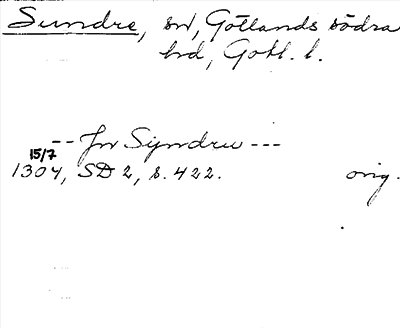 Sundre, sn, Gotlands södra
hd, Gotl. l.
-- Jn Syndru ---
15/7
1304, SD 2, s. 422. orig.